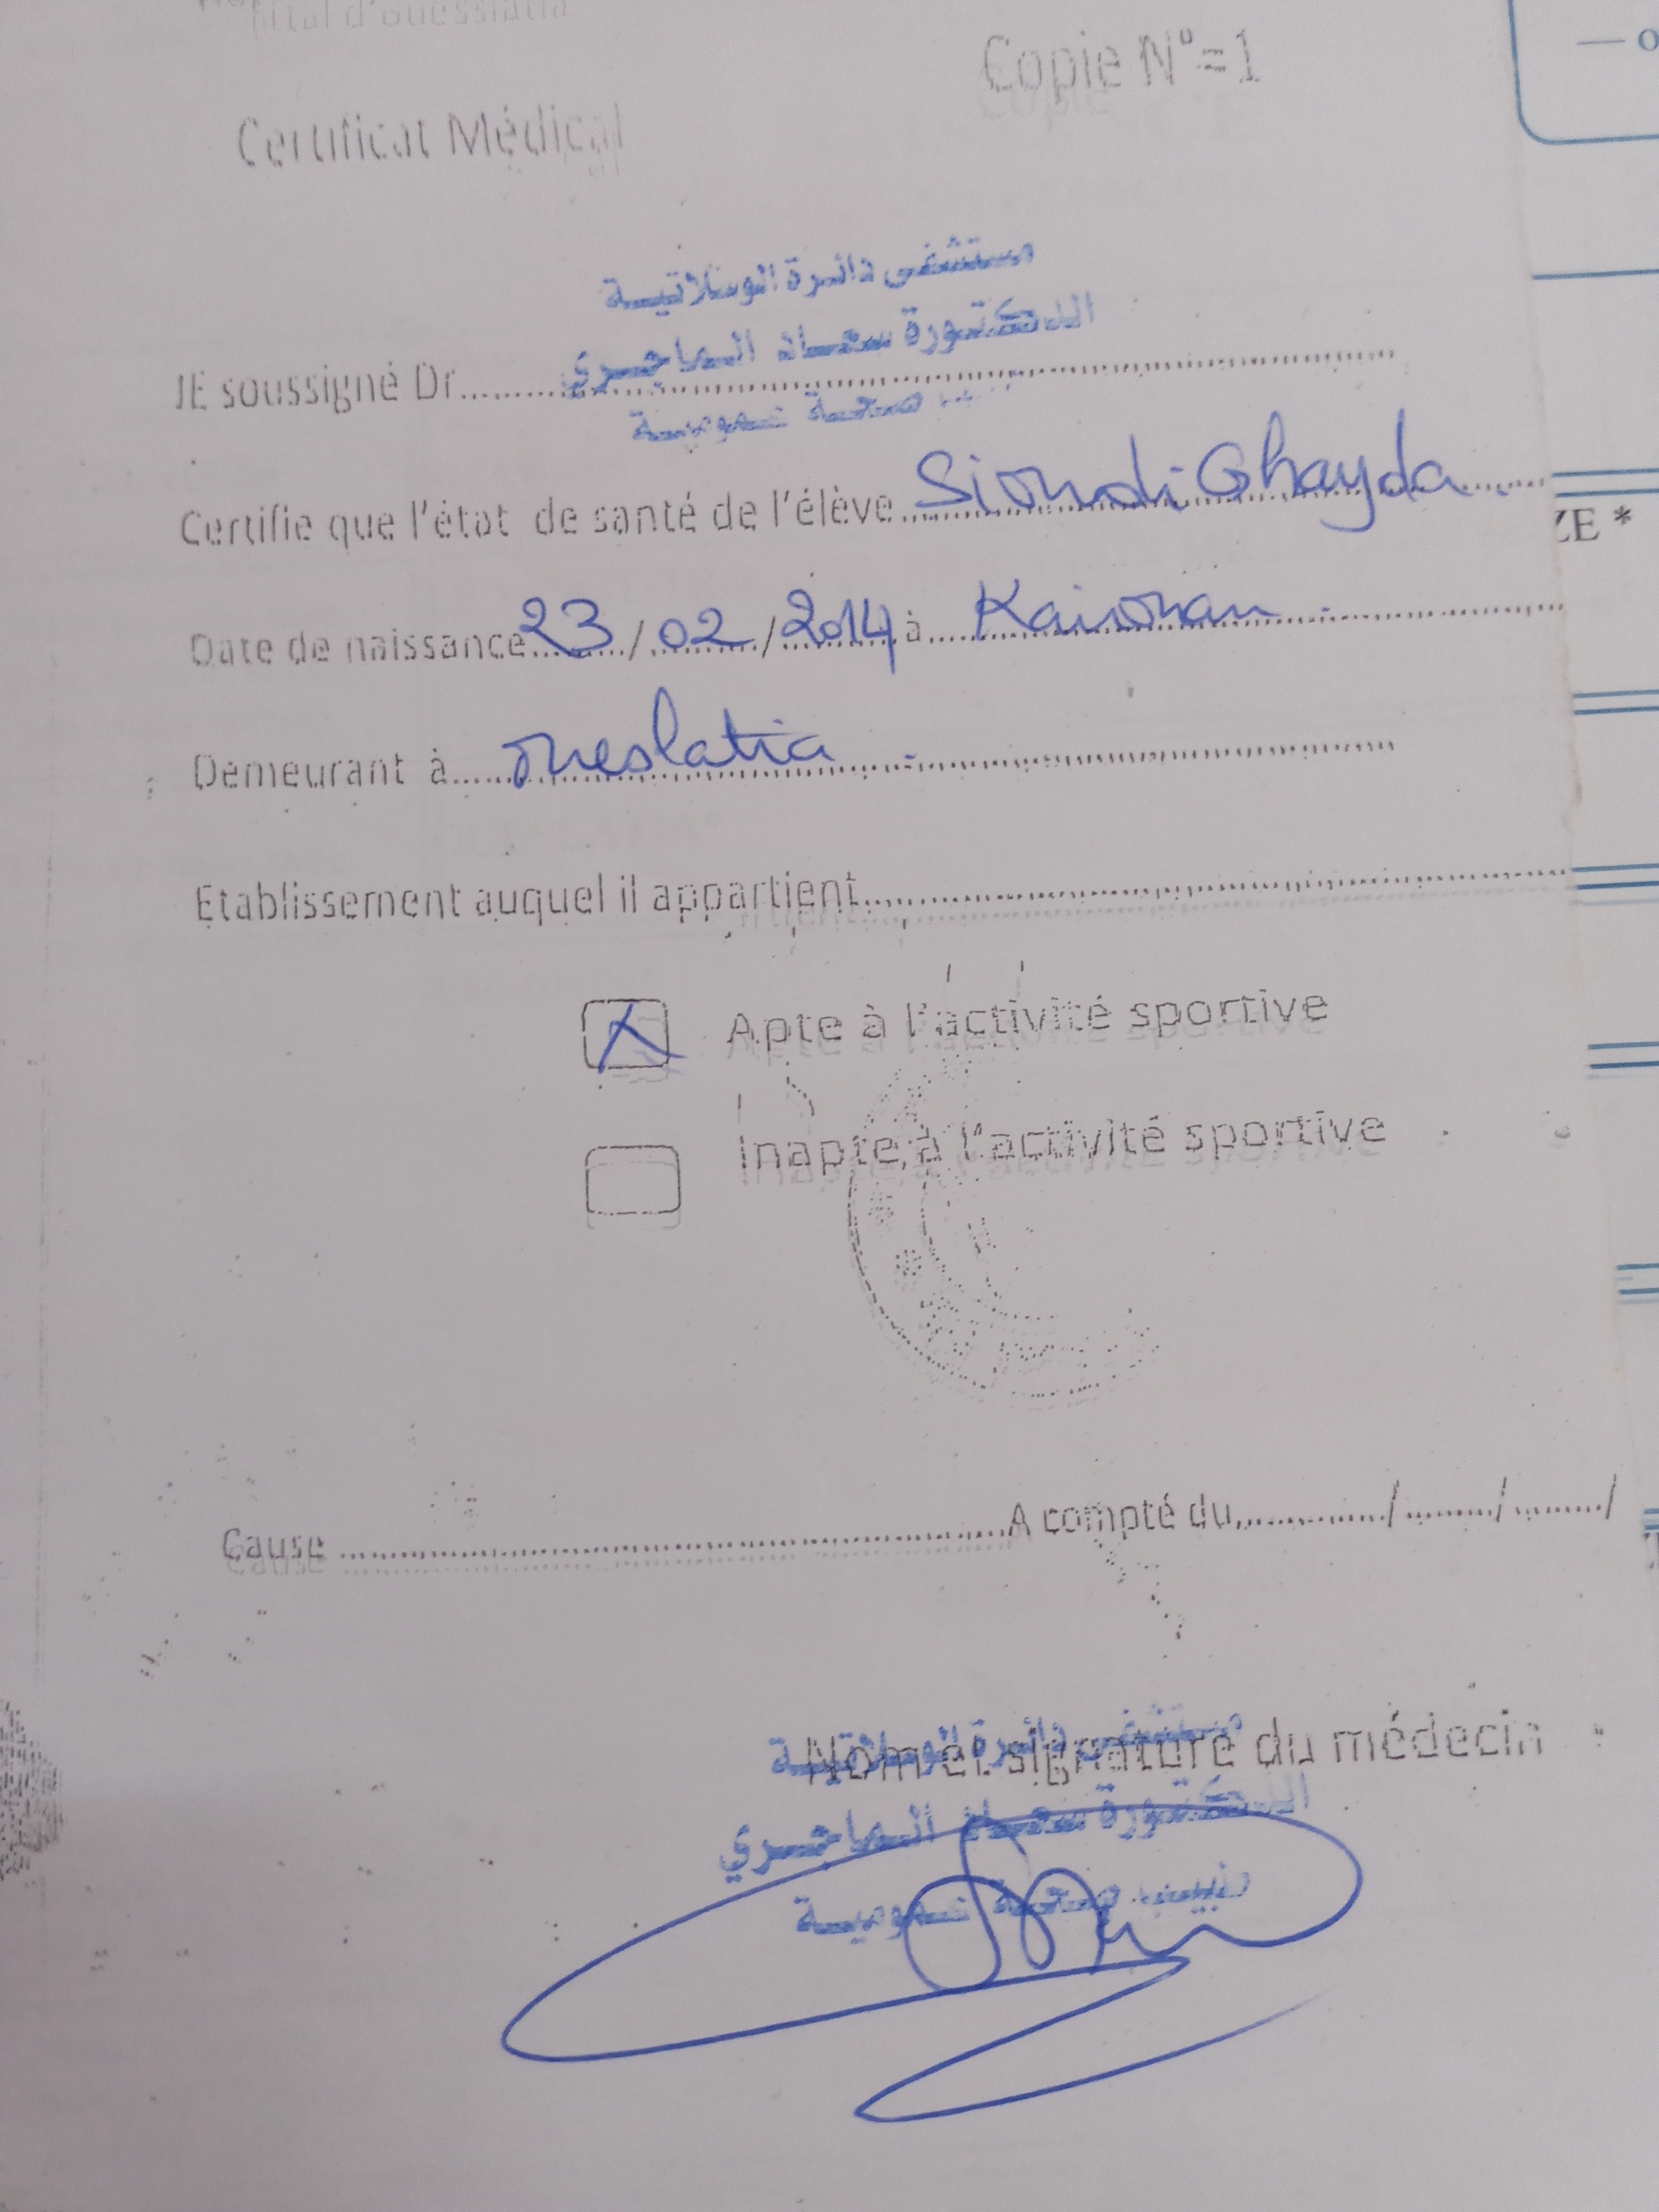 pital d'ouesslatia
Copie N°=1
Certificat Médical
مستشفى دائرة الوسلاتية
الدكتورة سعاد الماجري
JE soussigné Dr
صحة عمومية
Certifie que l'état de santé de l'élève Sioudi Ghayda
ZE *
Date de naissance 23/02/2014 à Kairouan
Demeurant à oueslatia
Etablissement auquel il appartient
Apte à l'activité sportive
Inapte à l'activité sportive
Cause A compté du / / /
مستشفى دائرة الوسلاتية
Nom et signature du médecin
الدكتورة سعاد الماجري
طبيب صحة عمومية